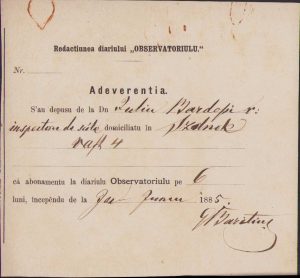 Redactiunea diariului „OBSERVATORIULU.“
Nr.
Adeverentia.
S'au depusu de la Dn Iuliu Bardosi r:
inspectoru de scóle domiciliatu in
va 4
că abonamentu la diariulu Observatoriulu pe 6
luni, începêndu de Jan - Juniu 1885.
G Baritiu